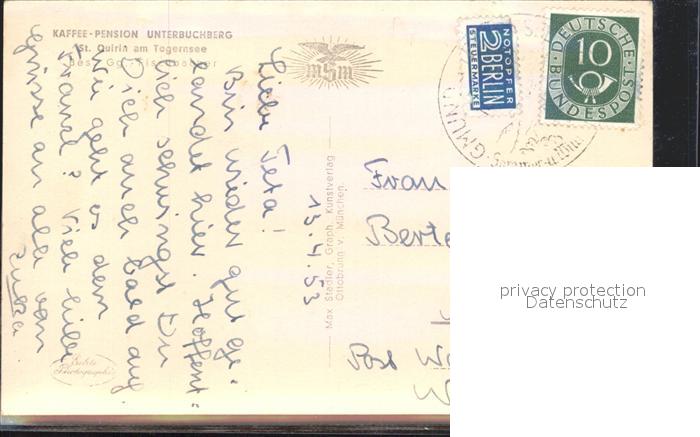 KAFFEE-PENSION UNTERBUCHBERG
St. Quirin am Tegernsee
Bes. Gg.
mSm
NOTOPFER
2 BERLIN
STEUERMARKE
DEUTSCHE
10
BUNDESPOST
GMUND
13.4.53
Liebe Teta!
Bin wieder gut ge-
landet hier. Hoffent-
lich schwingst Du
Dich auch bald auf.
Wie geht es dem
Franel? Viele liebe
Grüsse an alle von
Max Stadler, Graph. Kunstverlag
Ottobrunn v. München.
Frau
Berte
Post
W
Echte
Photographie
privacy protection
Datenschutz